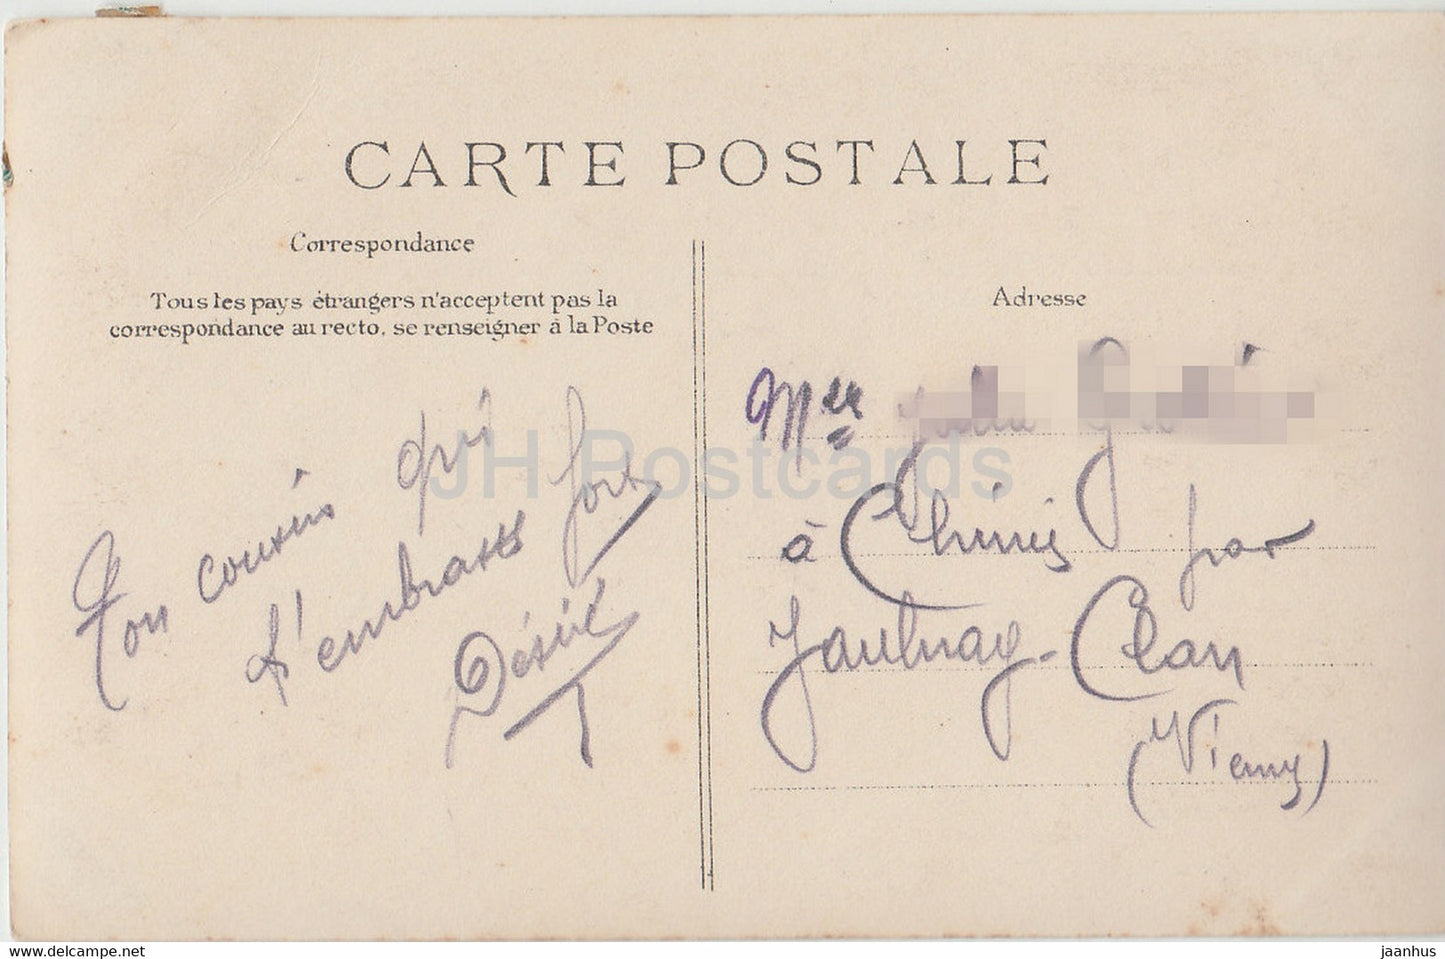 CARTE POSTALE
Correspondance
Tous les pays étrangers n'acceptent pas la
correspondance au recto, se renseigner à la Poste
Ton cousin qui
t'embrasse fort
Désiré
Adresse
Mlle
à Chincé par
Jaulnay-Clan
(Vienne)
JH Postcards
www.delcampe.net
jaanhus